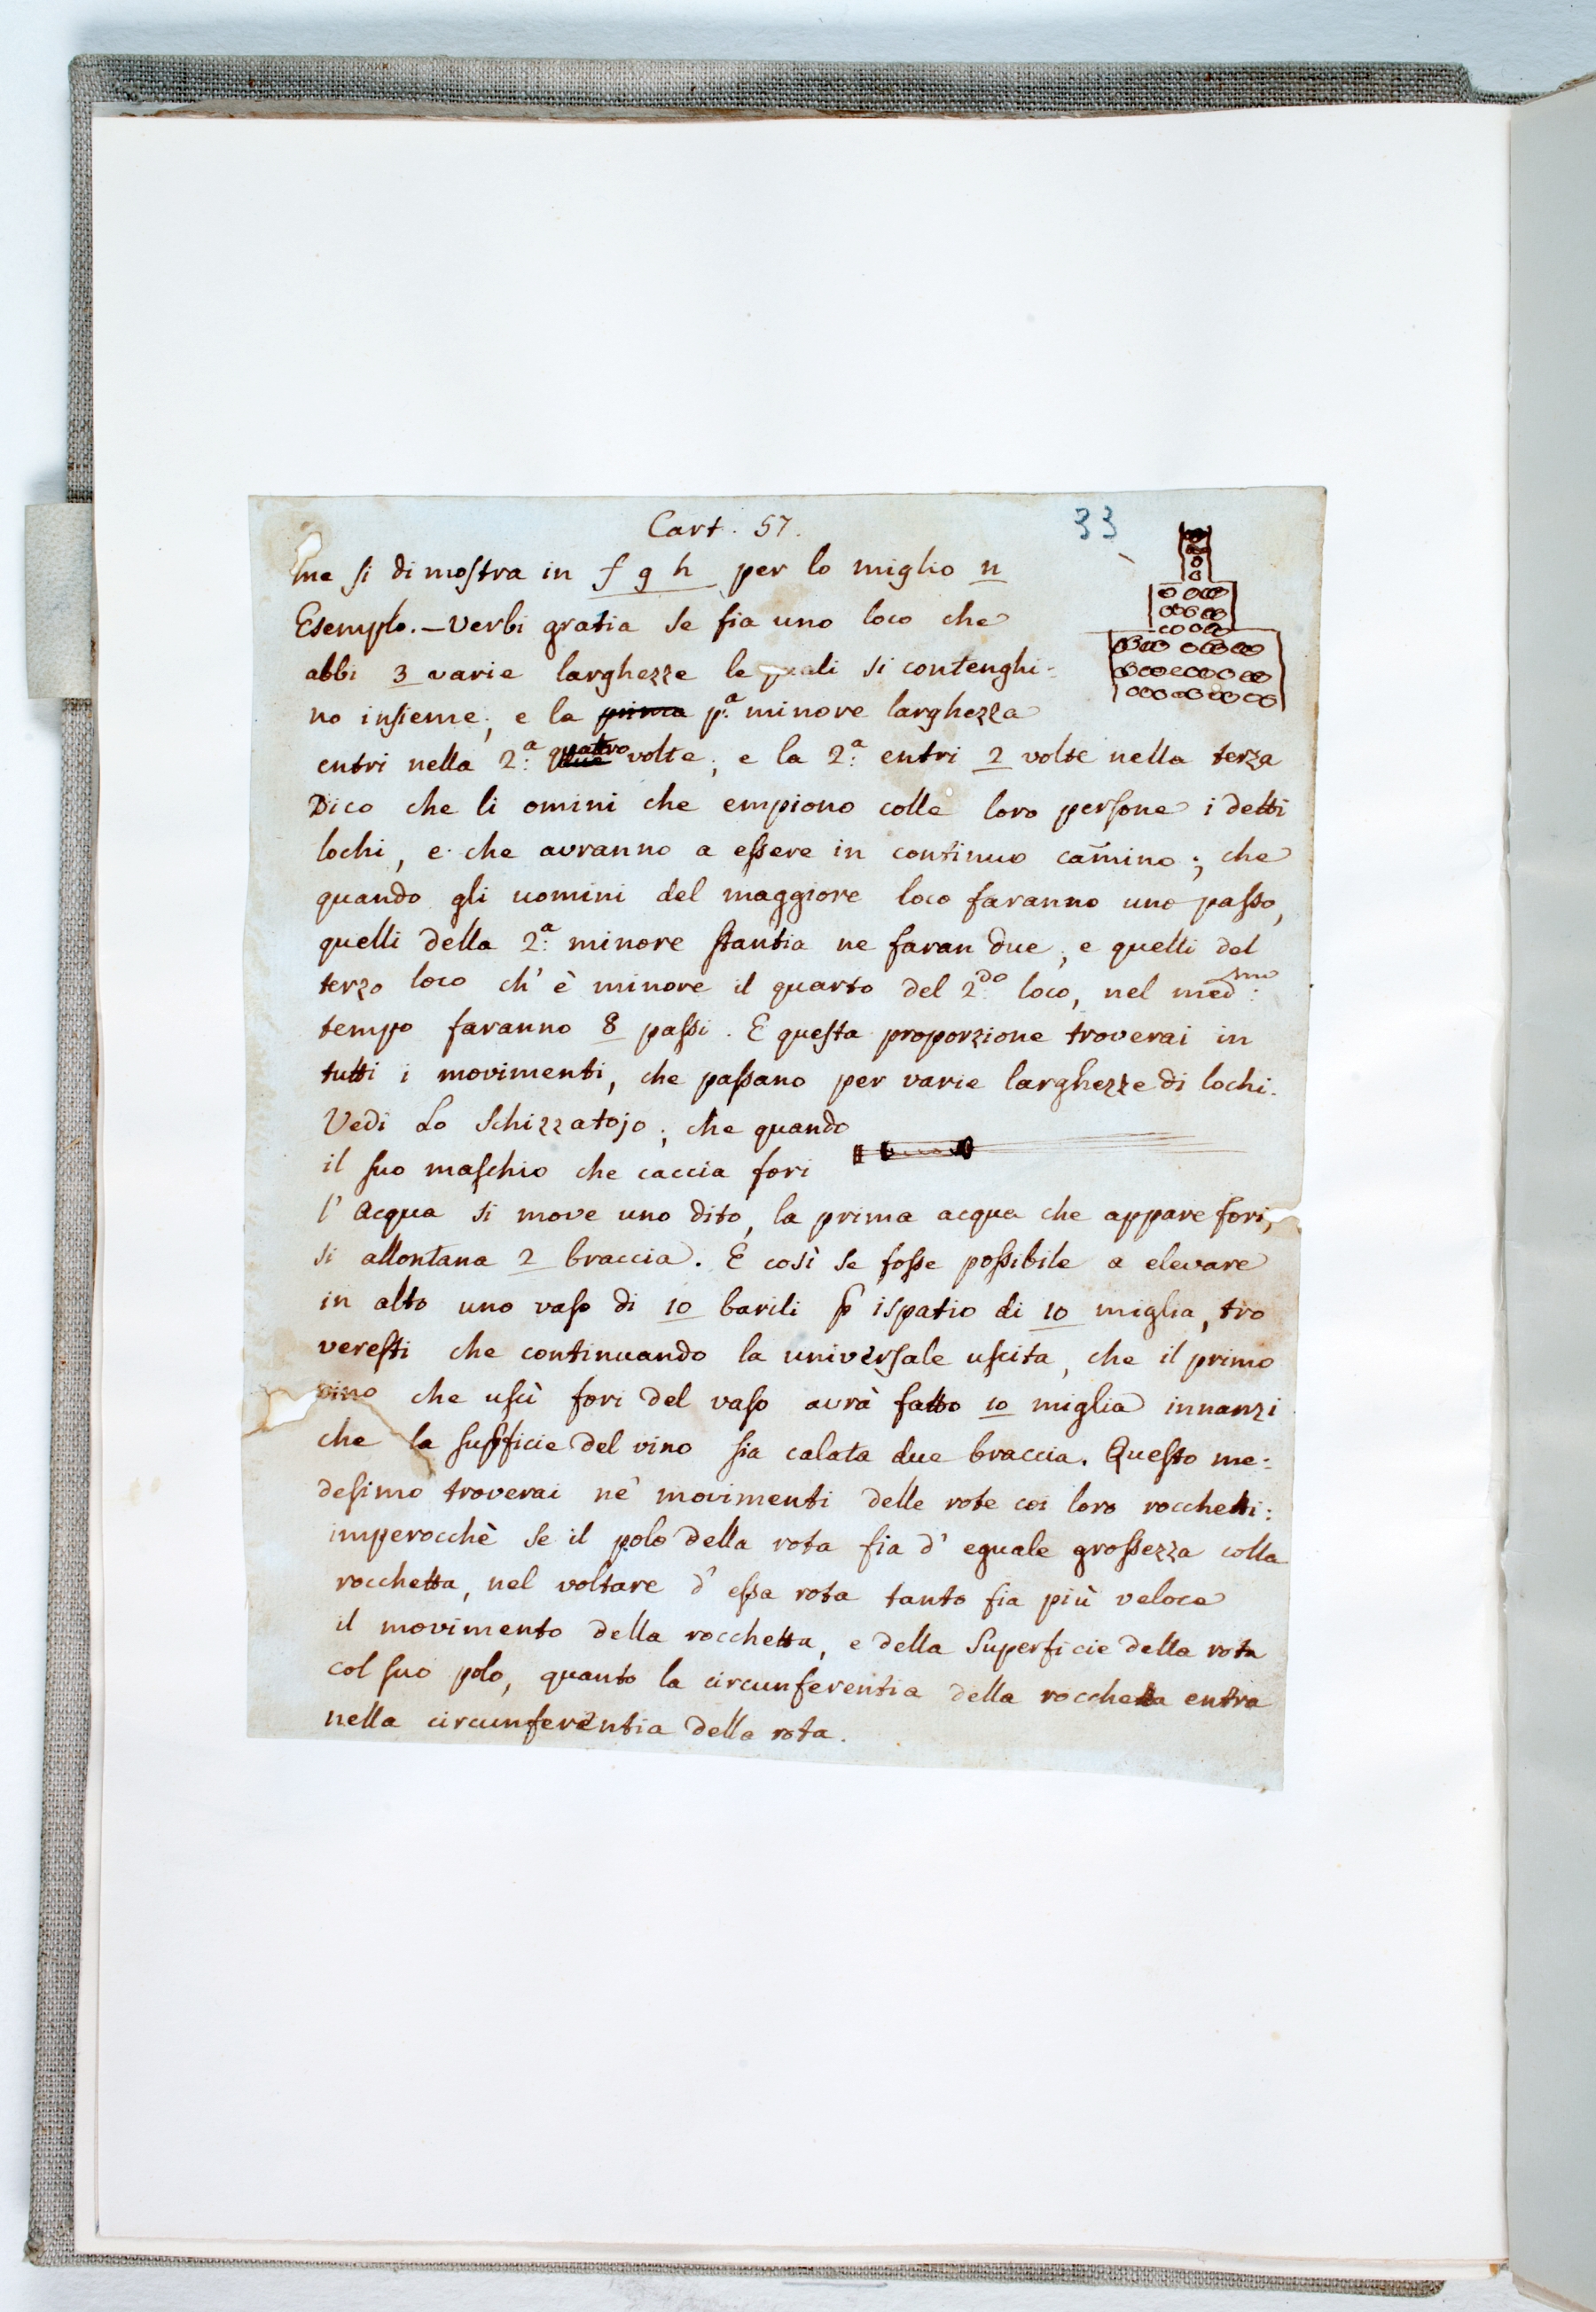 Cart. 57.
33
me si dimostra in f g h per lo miglio n
Esemplo. – Verbi gratia se fia uno loco che
abbi 3 varie larghezze le quali si contenghi-
no insieme; e la prima p.ª minore larghezza
entri nella 2.ª due quattro volte; e la 2.ª entri 2 volte nella terza
Dico che li omini che empiono colle loro persone i detti
lochi, e che avranno a essere in continuo cam̄ino; che
quando gli uomini del maggiore loco faranno uno passo,
quelli della 2.ª minore stantia ne faran due; e quelli del
terzo loco ch' è minore il quarto del 2.do loco, nel med.smo
tempo faranno 8 passi. E questa proporzione troverai in
tutti i movimenti, che passano per varie larghezze di lochi.
Vedi Lo Schizzatojo; che quando
il suo maschio che caccia fori
l' Acqua si move uno dito, la prima acqua che appare fori,
si allontana 2 braccia. E così se fosse possibile a elevare
in alto uno vaso di 10 barili p ispatio di 10 miglia, tro
veresti che continuando la universale uscita, che il primo
vino che uscì fori del vaso avrà fatto 10 miglia innanzi
che la supficie del vino sia calata due braccia. Questo me-
desimo troverai ne' movimenti delle rote coi loro rocchetti:
imperocchè se il polo della rota fia d' eguale grossezza colla
rocchetta, nel voltare d' essa rota tanto fia più veloce
il movimento della rocchetta, e della Superficie della rota
col suo polo, quanto la circunferentia della rocchetta entra
nella circunferentia della rota.